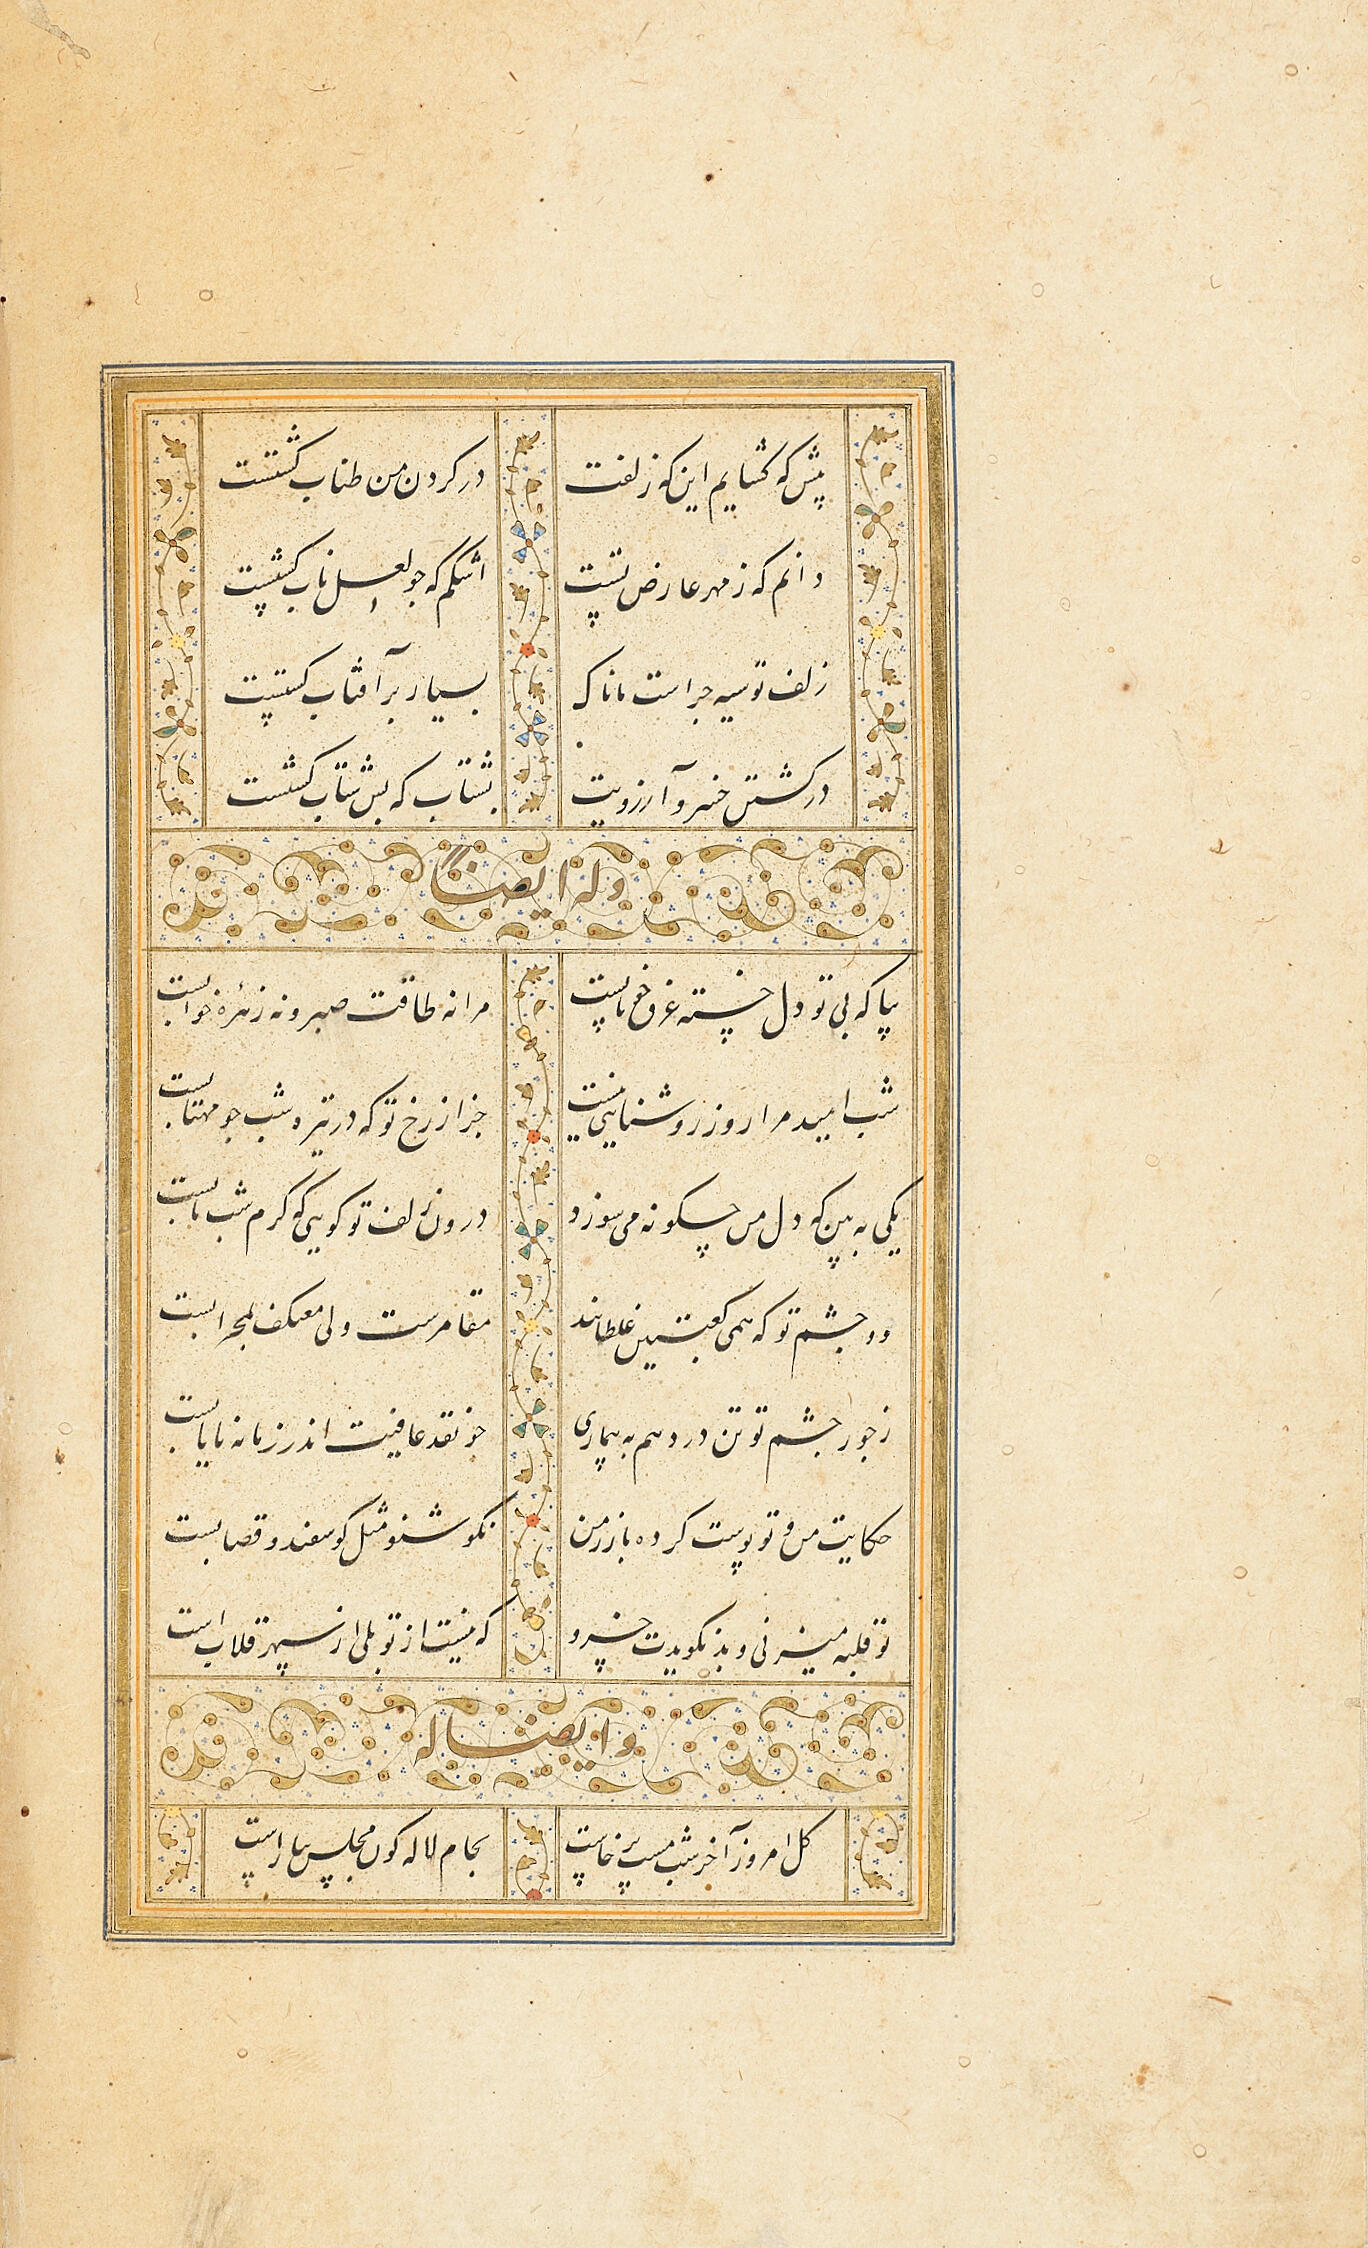 پیش که کشایم این که زلفت در کردن من طناب کشتست
دانم که ز مهر عارض تست اشکم که جو لعل ناب کشتست
زلف تو سیه جراست مانا که بسیار بر آفتاب کشتست
در کشتن خسرو آرزویت بشتاب که بس شتاب کشتست
وله ایضاً
بیا که بی تو دل خسته غرق خونابست مرا نه طاقت صبر و نه زهره خوابست
شب امید مرا روز روشنایی نیست جز از رخ تو که در تیره شب جو مهتابست
یکی به بین که دل من چکونه می سوزد درون زلف تو کویی که کرم شب تابست
دو جشم تو که همی کعبتین غلطانند مقامرست ولی معتکف بمحرابست
ز جور جشم تو تن در دهم به بیماری جو نقد عافیت اندر زمانه نایابست
حکایت من و تو پوست کرده باز ز من نکو شنو مثل کوسفند و قصابست
تو قلبه میزنی و بذ نکویدت خسرو که نیست از تو بلی از سپهر قلابست
وایضاله
کل امروز آخر شب مست برخاست بجام لاله کون مجلس بیاراست